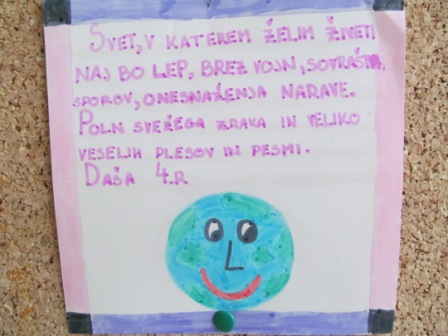 SVET, V KATEREM ŽELIM ŽIVETI
NAJ BO LEP, BREZ VOJN, SOVRAŠTVA,
SPOROV, ONESNAŽENJA NARAVE.
POLN SVEŽEGA ZRAKA IN VELIKO
VESELIH PLESOV IN PESMI.
DAŠA 4.R.